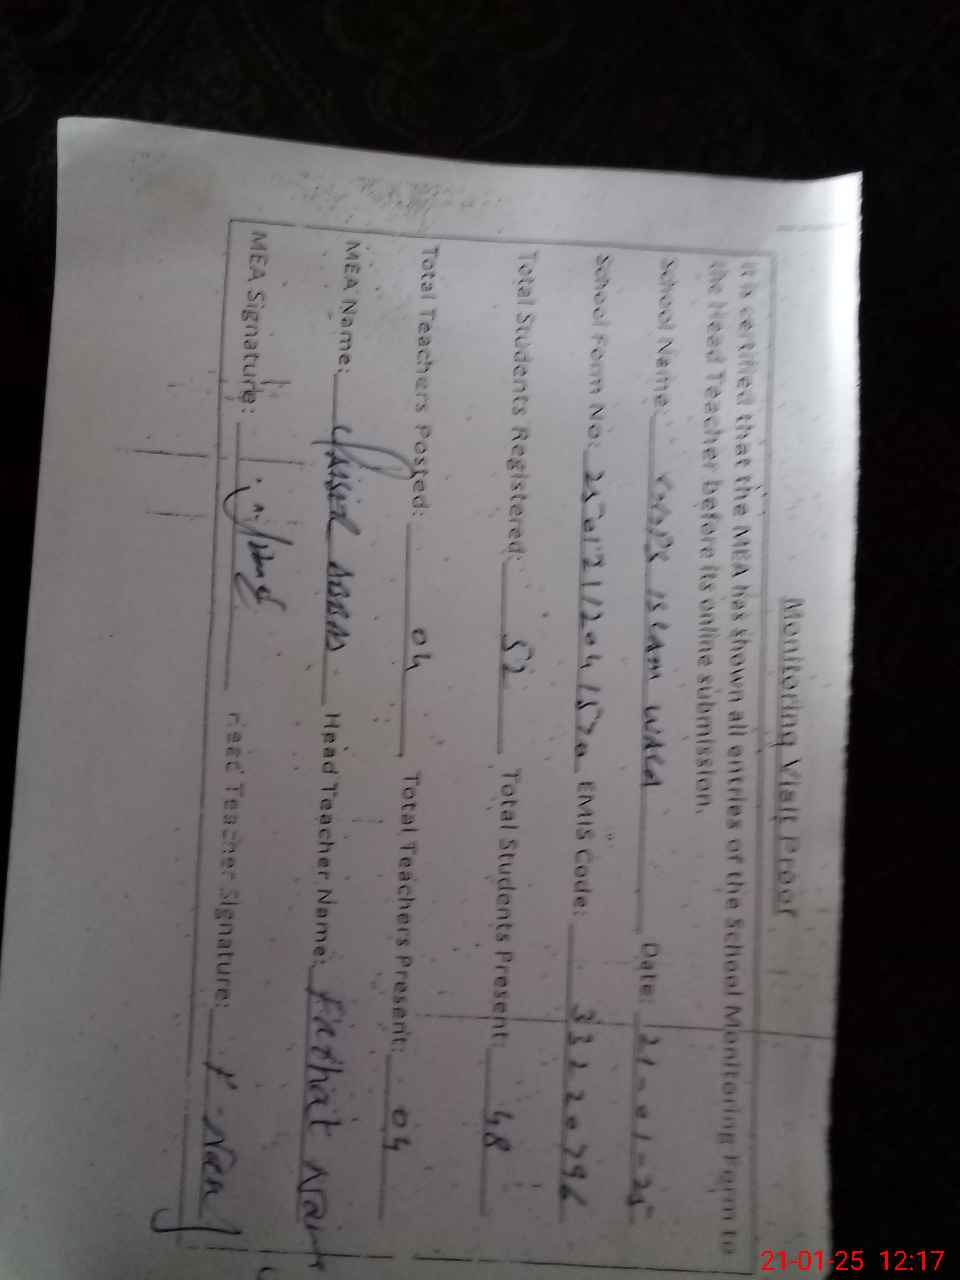 Monitoring Visit Proof
It is certified that the MEA has shown all entries of the School Monitoring Form to
the Head Teacher before its online submission.
School Name: ISLAM WALA Date: 21-01-25
School Form No: EMIS Code: 33220796
Total Students Registered: 52 Total Students Present: 48
Total Teachers Posted: 04 Total Teachers Present: 04
MEA Name: ABBAS Head Teacher Name: Farhat
MEA Signature: Head Teacher Signature:
21-01-25 12:17